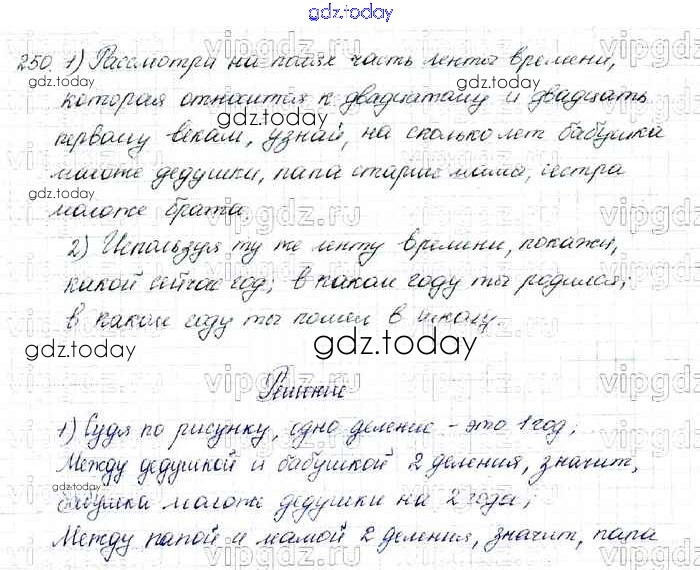 gdz.today
250. 1) Рассмотри на полях часть ленты времени,
которая относится к двадцатому и двадцать
первому векам, узнай, на сколько лет бабушка
моложе дедушки, папа старше мамы, сестра
моложе брата.
2) Используя ту же ленту времени, покажи,
какой сейчас год; в каком году ты родился;
в каком году ты пошел в школу.
Решение
1) Судя по рисунку, одно деление - это 1 год;
Между дедушкой и бабушкой 2 деления, значит,
бабушка моложе дедушки на 2 года;
Между папой и мамой 2 деления, значит, папа
vipgdz.ru
gdz.today